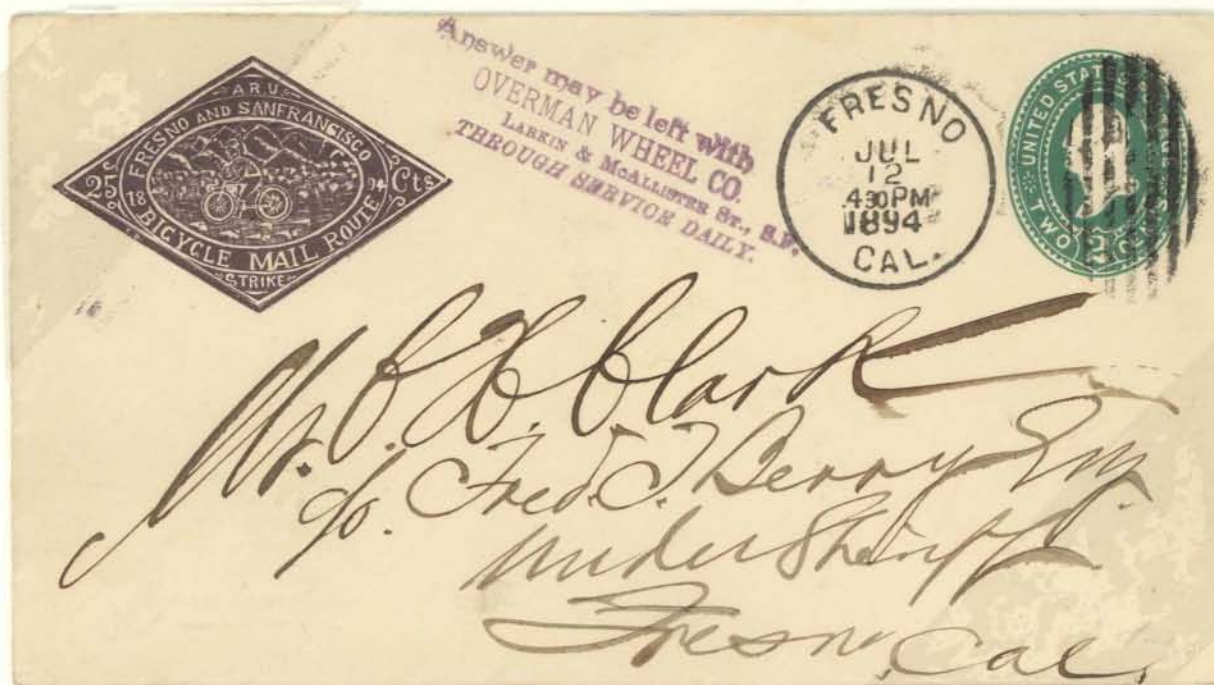 A.R.U.
FRESNO AND SANFRANCISCO
25 Cts
18 94
BICYCLE MAIL ROUTE
STRIKE
Answer may be left with
OVERMAN WHEEL CO.
LARKIN & MCALLISTER ST., S.F.
THROUGH SERVICE DAILY.
FRESNO
JUL
12
430PM
1894
CAL.
UNITED STATES
TWO 2 CENTS
Mr. C. H. Clark
c/o. Fred. T. Berry Esq.
Under Sheriff
Fresno, Cal.